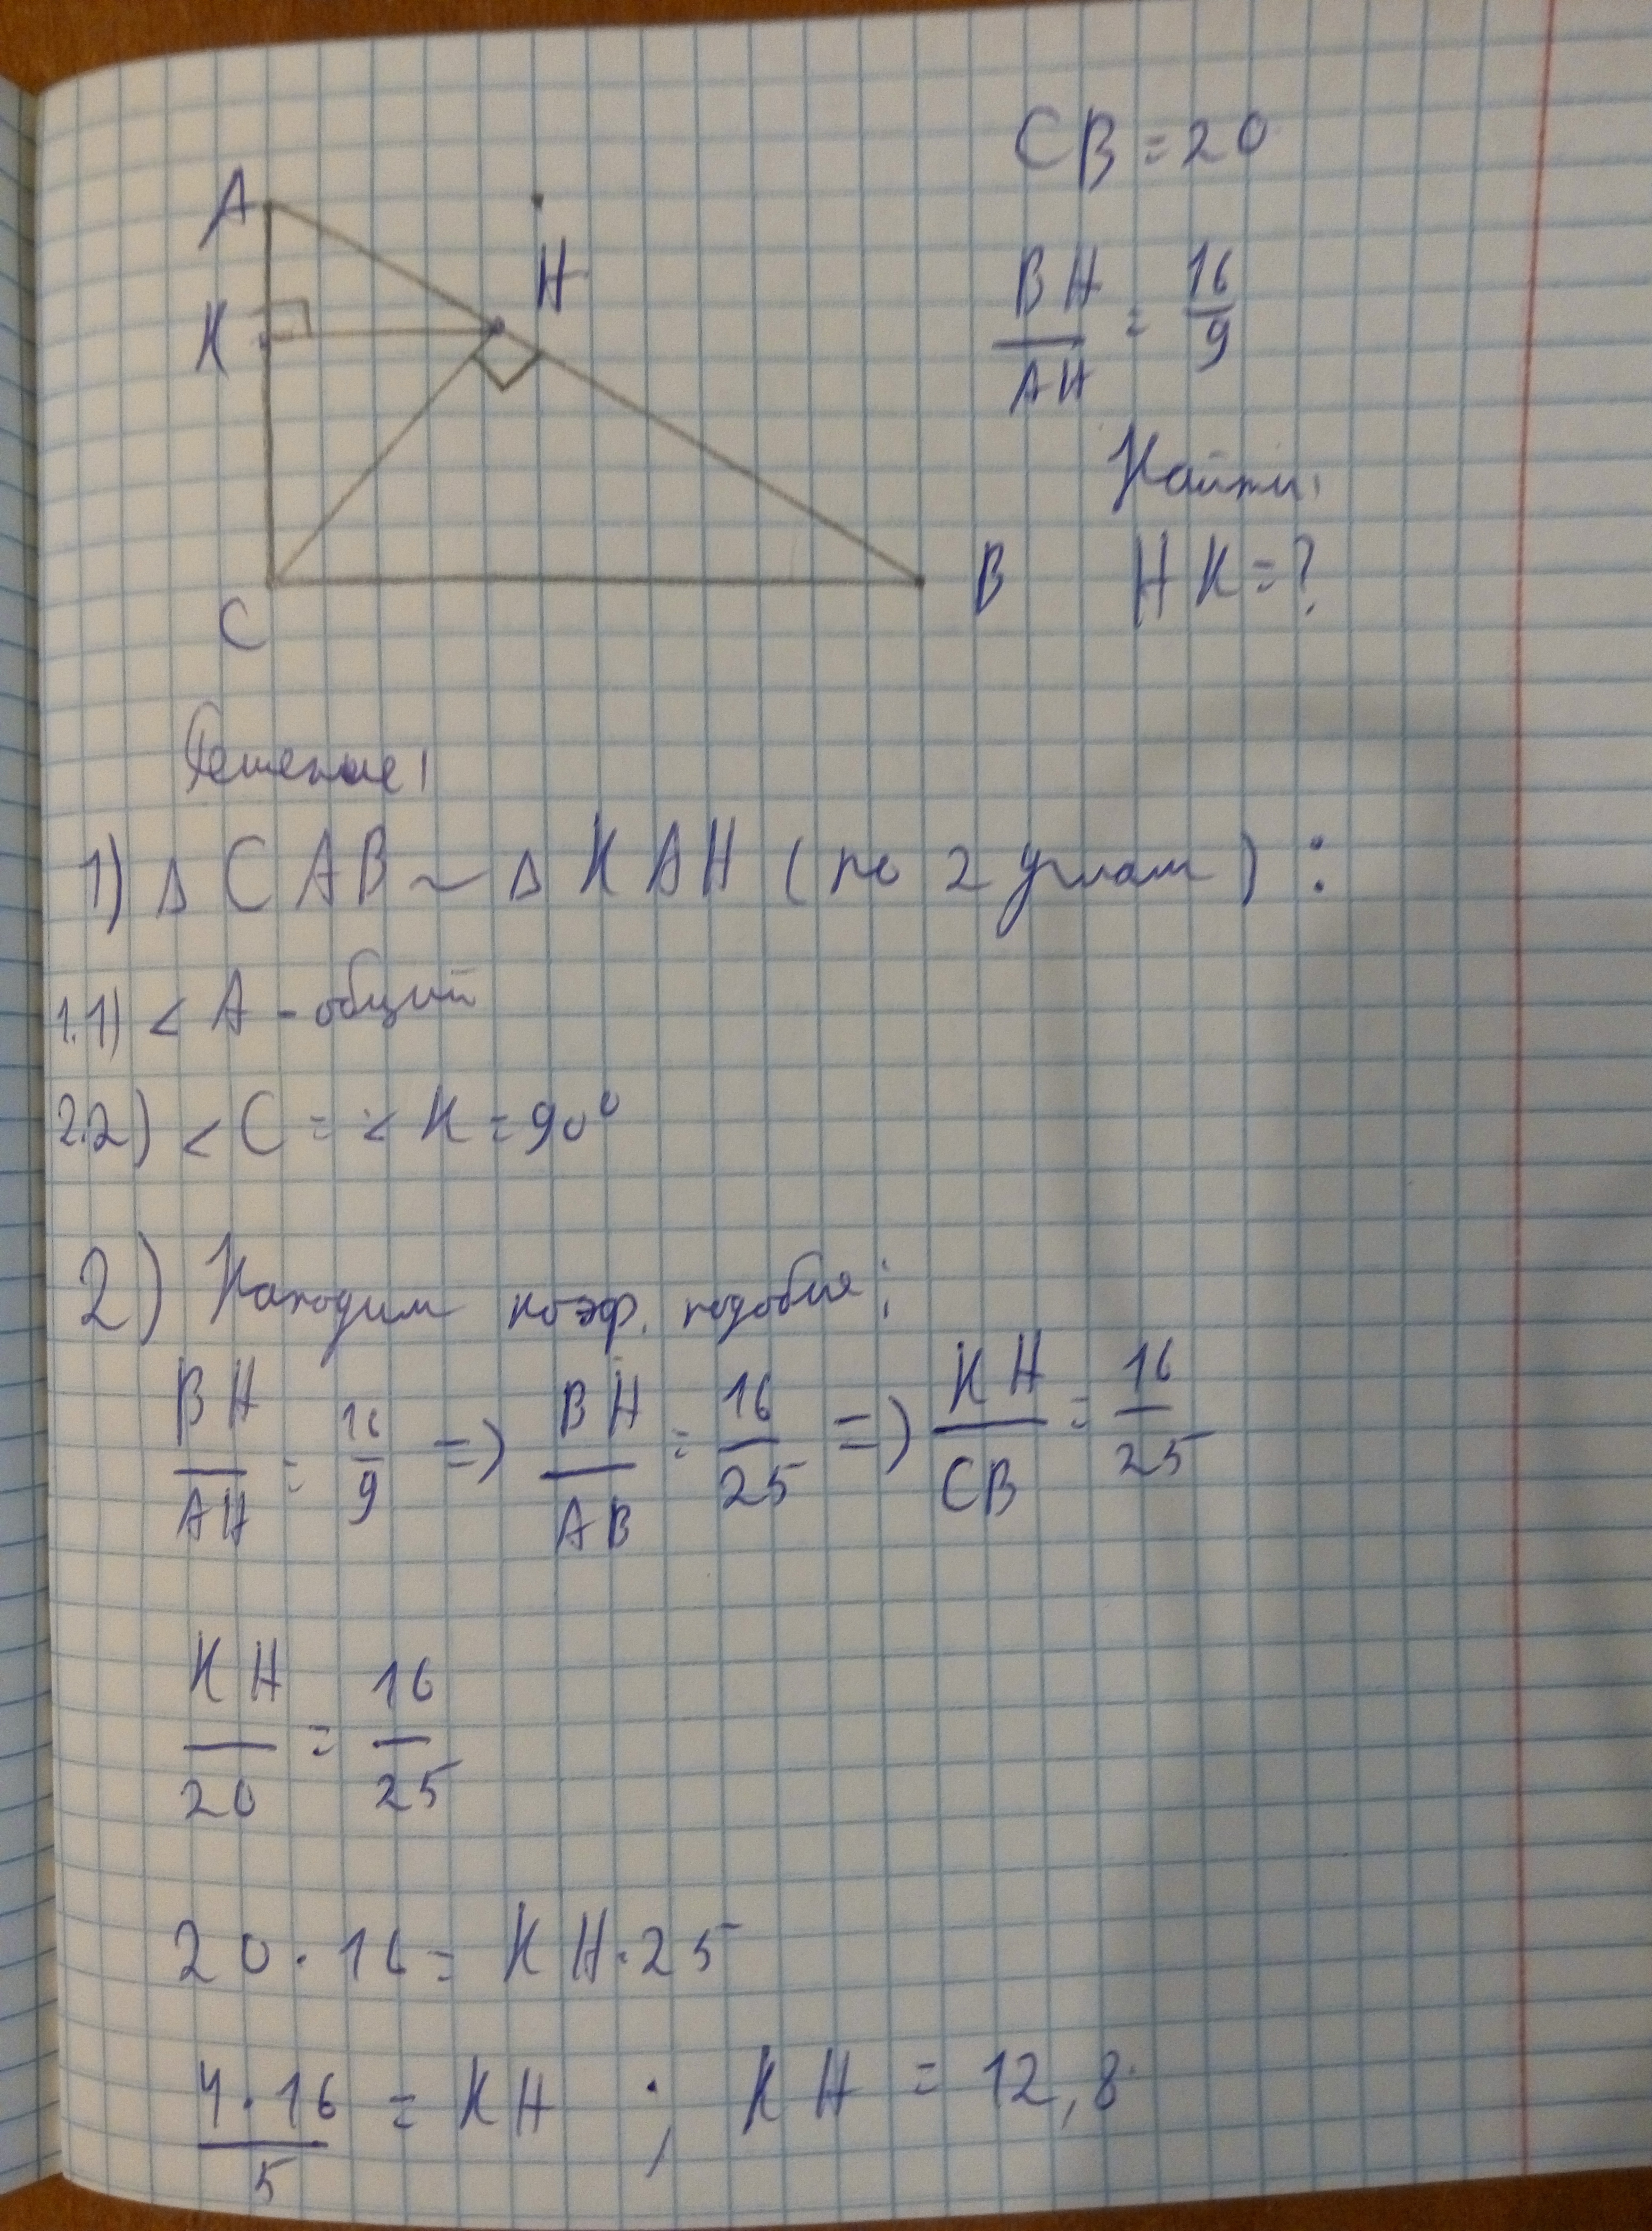 CB = 20
A
H
BH/AH = 16/9
K
Найти:
HK = ?
B
C
Решение:
1) Δ CAB ~ Δ KAH (по 2 углам) :
1.1) < A - общий
2.2) < C = < K = 90°
2) Находим коэф. подобия:
BH/AH = 16/9 => BH/AB = 16/25 => KH/CB = 16/25
KH/20 = 16/25
20 · 16 = KH · 25
4 · 16/5 = KH ; KH = 12,8